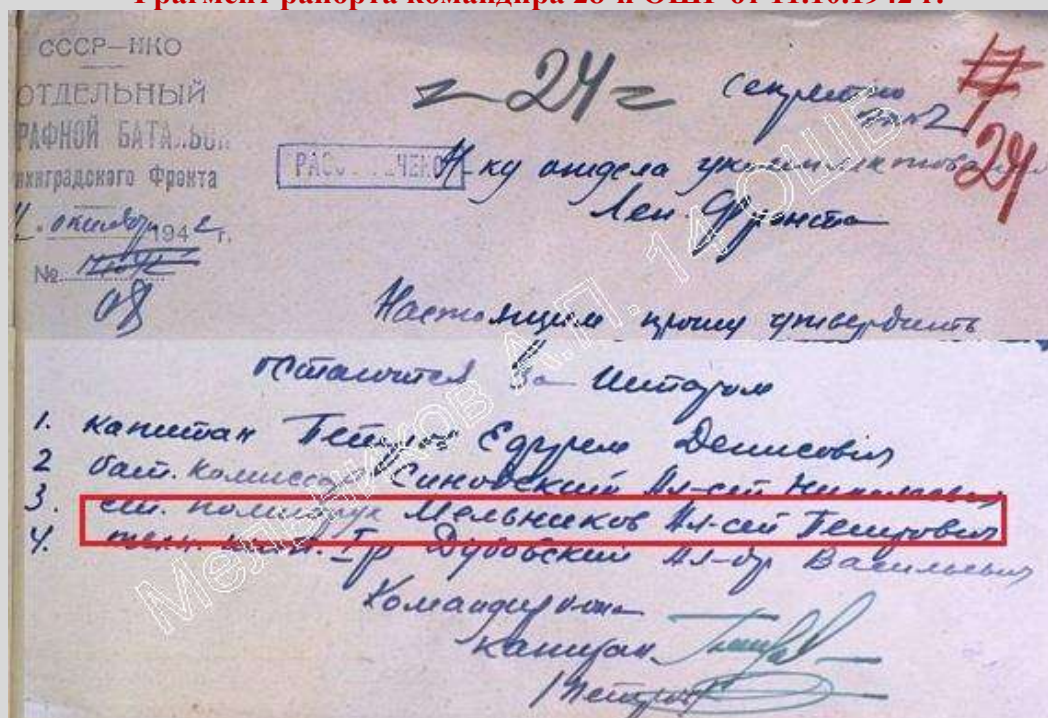 Фрагмент рапорта командира 28-й ОШР от 11.10.1942 г.
СССР–НКО
ОТДЕЛЬНЫЙ
РАФНОЙ БАТАЛЬОН
нинградского Фронта
11. октября 1942 г.
№
08
= 24 =
Секретно
экз 2
24
РАССЕКРЕЧЕНО
Н-ку отдела укомплектования
Лен. Фронта
Настоящим прошу утвердить
за Штатом
1. капитан Петров Ефрем Денисович
2 бат. комиссар Синовский Ал-сей Николаевич
3. ст. политрук Мельников Ал-сей Петрович
4. техн. инт. I р Дубовский Ал-др Васильевич
Командир б-на
капитан
/Петров/
Мельников А.П. 14 ОШБ